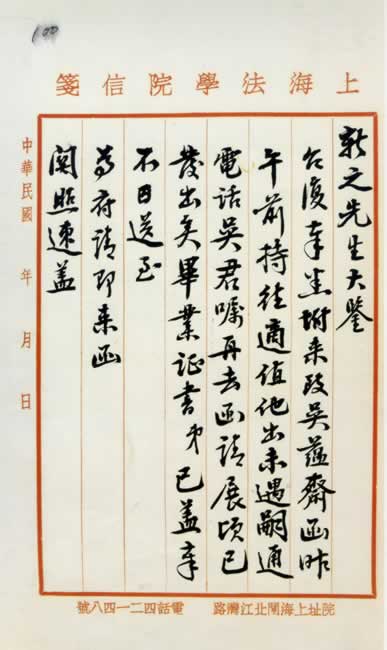 100
上海法學院信箋
新之先生大鑒
台復奉悉附来致吳蘊齋函昨
午前持往適值他出未遇嗣通
電话吳君嘱再去函請展頃已
發出矣畢業证書弟已盖章
不日送至
府請即来函
関照速盖
中華民國 年 月 日
院址上海閘北江灣路 電話四二一四八號